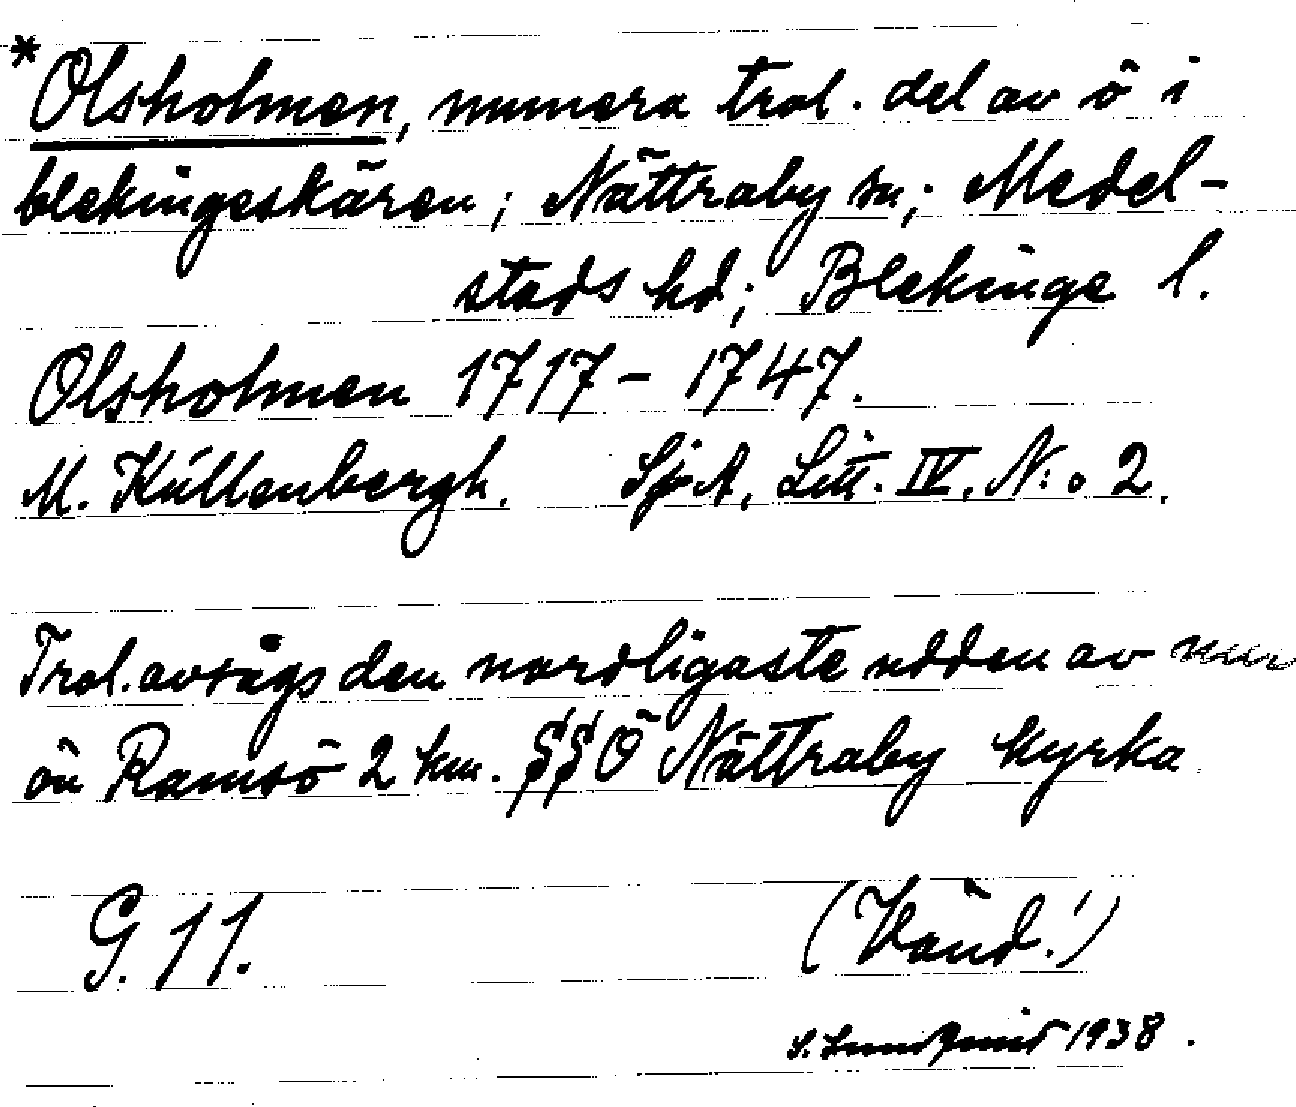 *Olsholmen, numera trol. del av ö i
blekingeskären; Nättraby sn; Medel-
stads hd; Blekinge l.
Olsholmen 1717-1747.
M. Küllenbergh. SjöA, Litt. IV, N:o 2.
Trol. avsågs den nordligaste udden av nuv
ön Ramsö 2 km. §§Ö Nättraby kyrka
G. 11. (Vänd!)
S. Lundqvist 1938.